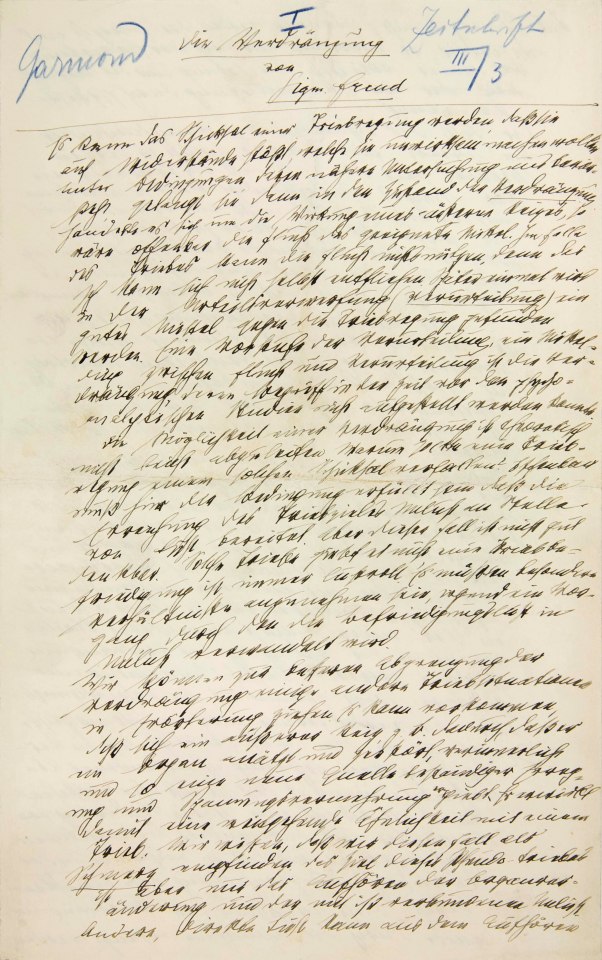 Garmond
I
Zeitschrift
III/3
Die Verdrängung
von
Sigm Freud
Es kann das Schicksal einer Triebregung werden, daß sie
auf Widerstände stößt, welche sie unwirksam machen wollen.
Unter Bedingungen deren nähere Untersuchung uns bevor-
steht gelangt sie dann in den Zustand der Verdrängung.
Handelte es sich um die Wirkung eines äußeren Reizes, so
wäre offenbar die Flucht das geeignete Mittel. Im Falle
des Triebes kann die Flucht nichts nützen, denn das
Ich kann sich nicht selbst entfliehen. Später einmal wird
in der Urteilsverwerfung (Verurteilung) ein
gutes Mittel gegen die Triebregung gefunden
werden. Eine Vorstufe der Verurteilung, ein Mittel-
ding zwischen Flucht und Verurteilung ist die Ver-
drängung deren Begriff in der Zeit vor den psycho-
analytischen Studien nicht aufgestellt werden konnte.
Die Möglichkeit einer Verdrängung ist theoretisch
nicht leicht abzuleiten. Warum sollte eine Trieb-
regung einem solchen Schicksal verfallen? Offenbar
muß hier die Bedingung erfüllt sein daß die
Erreichung des Triebzieles Unlust an Stelle
von Lust bereitet. Aber dieser Fall ist nicht gut
denkbar. Solche Triebe giebt es nicht eine Triebbe-
friedigung ist immer lustvoll. Es müßten besondere
Verhältnisse anzunehmen sein, irgend ein Vor-
gang durch den die Befriedigungslust in
Unlust verwandelt wird.
Wir können zur besseren Abgrenzung der
Verdrängung einige andere Triebsituationen
in Erörterung ziehen. Es kann vorkommen
daß sich ein äußerer Reiz z. B. dadurch daß er
ein Organ anätzt und zerstört, verinnerlicht
und so eine neue Quelle beständiger Erreg-
ung und Spannungsvermehrung ergiebt. Er erwirbt
damit eine weitgehende Ähnlichkeit mit einem
Trieb. Wir wissen, daß wir diesen Fall als
Schmerz empfinden. Das Ziel dieses Pseudo-Triebes
ist aber nur das Aufhören der Organver-
änderung und der mit ihr verbundenen Unlust.
Andere, direkte Lust kann aus dem Aufhören